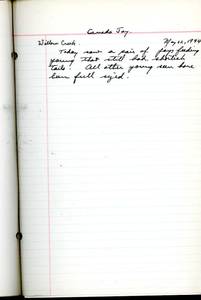 Canada Jay.
Willow Creek. May 22, 1944
Today saw a pair of jays feeding
young that still had shortish
tails. All other young seen have
been full sized.